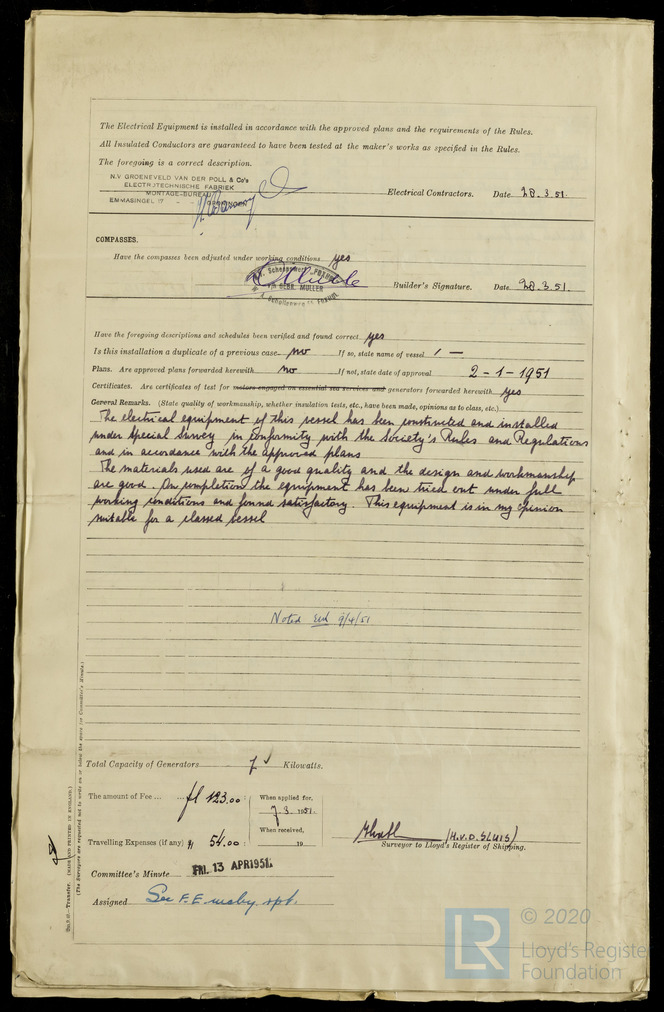 The Electrical Equipment is installed in accordance with the approved plans and the requirements of the Rules.
All Insulated Conductors are guaranteed to have been tested at the maker's works as specified in the Rules.
The foregoing is a correct description.
N.V GROENEVELD VAN DER POLL & Co's
ELECTROTECHNISCHE FABRIEK
MONTAGE-BUREAU
EMMASINGEL 17
Electrical Contractors. Date 28.3.51.
COMPASSES.
Have the compasses been adjusted under working conditions yes
Builder's Signature. Date 28.3.51.
GEBR. MULLER
Have the foregoing descriptions and schedules been verified and found correct yes
Is this installation a duplicate of a previous case no If so, state name of vessel / —
Plans. Are approved plans forwarded herewith no If not, state date of approval 2-1-1951
Certificates. Are certificates of test for motors engaged on essential sea services and generators forwarded herewith yes
General Remarks. (State quality of workmanship, whether insulation tests, etc., have been made, opinions as to class, etc.)
The electrical equipment of this vessel has been constructed and installed
under special survey in conformity with the Society's Rules and Regulations
and in accordance with the approved plans
The materials used are of a good quality and the design and workmanship
are good. On completion the equipment has been tried out under full
working conditions and found satisfactory. This equipment is in my opinion
suitable for a classed vessel
Noted 9/4/51
Total Capacity of Generators 7 Kilowatts.
The amount of Fee ... fl 123.00
When applied for,
7.3.1951.
Travelling Expenses (if any) 54.00
When received,
19
(H.V.D. SLUIS)
Surveyor to Lloyd's Register of Shipping.
Committee's Minute FRI. 13 APR 1951
Assigned See F.E. mchy. rpt.
(MADE AND PRINTED IN ENGLAND.)
(The Surveyors are requested not to write on or below the space for Committee's Minute.)
LR © 2020
Lloyd's Registe
Foundation